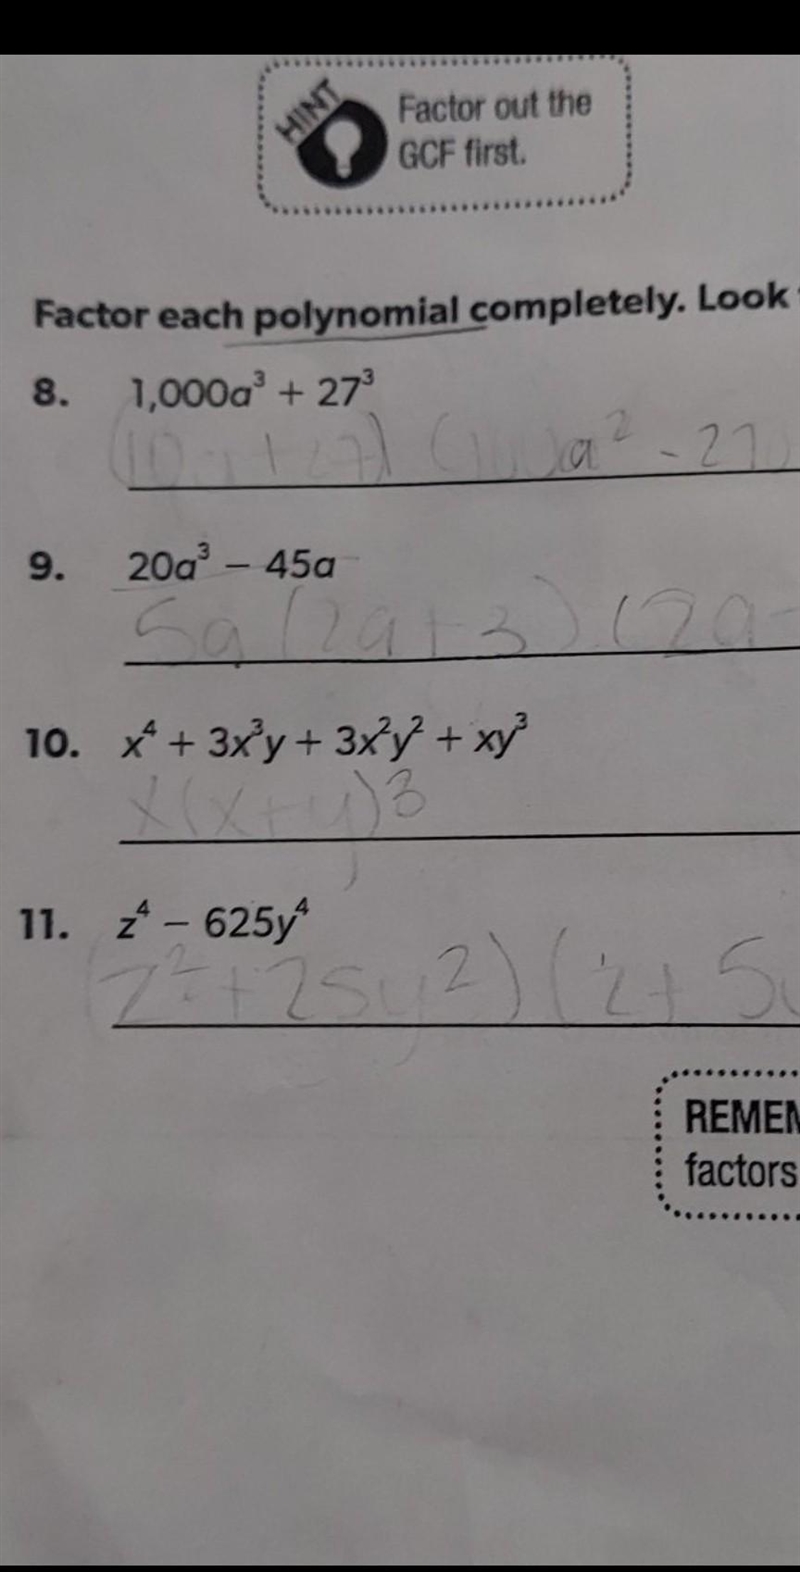 HINT
Factor out the
GCF first.
Factor each polynomial completely. Look
8. 1,000a³ + 27³
(10a + 27) (100a² - 270
9. 20a³ – 45a
5a (2a + 3) (2a -
10. x⁴ + 3x³y + 3x²y² + xy³
x(x+y)3
11. z⁴ – 625y⁴
(z²+25y²) (z + 5y
REMEM
factors